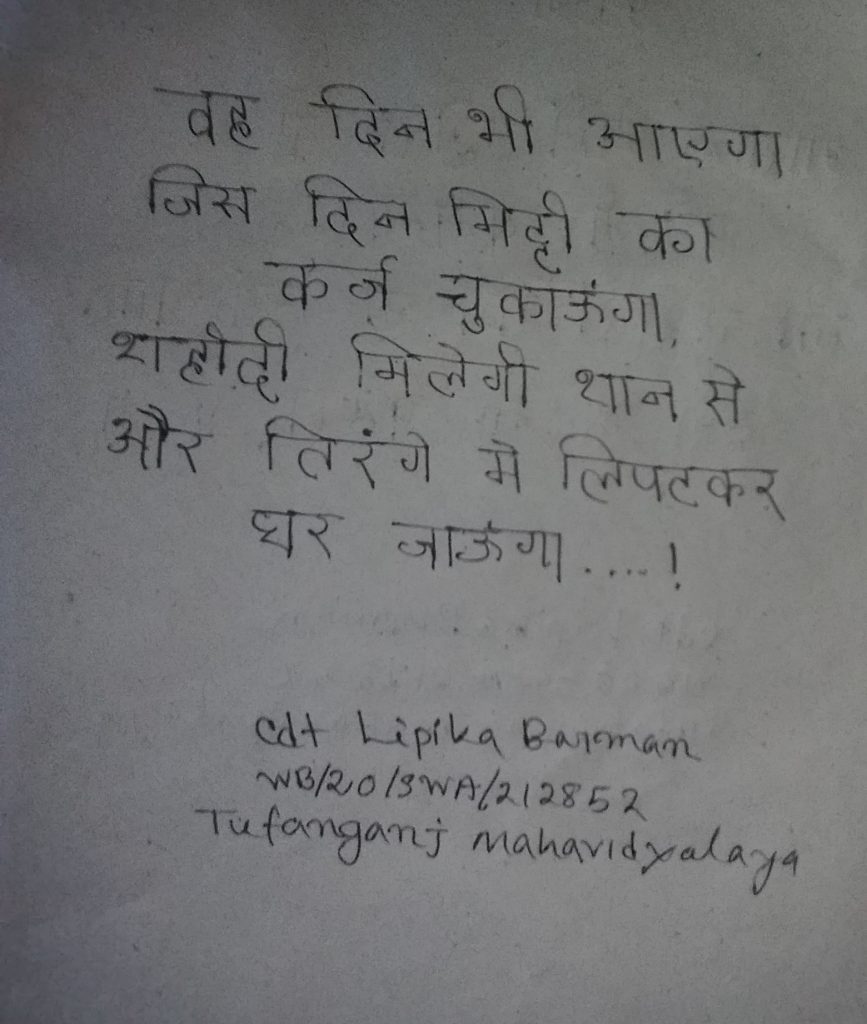 वह दिन भी आएगा
जिस दिन मिट्टी का
कर्ज चुकाऊंगा,
शहीदी मिलेगी शान से
और तिरंगे मे लिपटकर
घर जाऊंगा....!
Cdt Lipika Barman
WB/20/SWA/212852
Tufanganj Mahavidyalaya